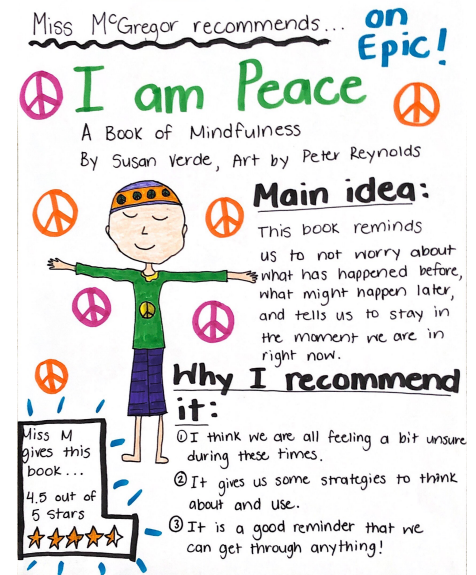 Miss McGregor recommends...
on
Epic!
I am Peace
A Book of Mindfulness
By Susan Verde, Art by Peter Reynolds
Main idea:
This book reminds
us to not worry about
what has happened before,
what might happen later,
and tells us to stay in
the moment we are in
right now.
Why I recommend
it:
① I think we are all feeling a bit unsure
during these times.
② It gives us some strategies to think
about and use.
③ It is a good reminder that we
can get through anything!
Miss M
gives this
book...
4.5 out of
5 stars